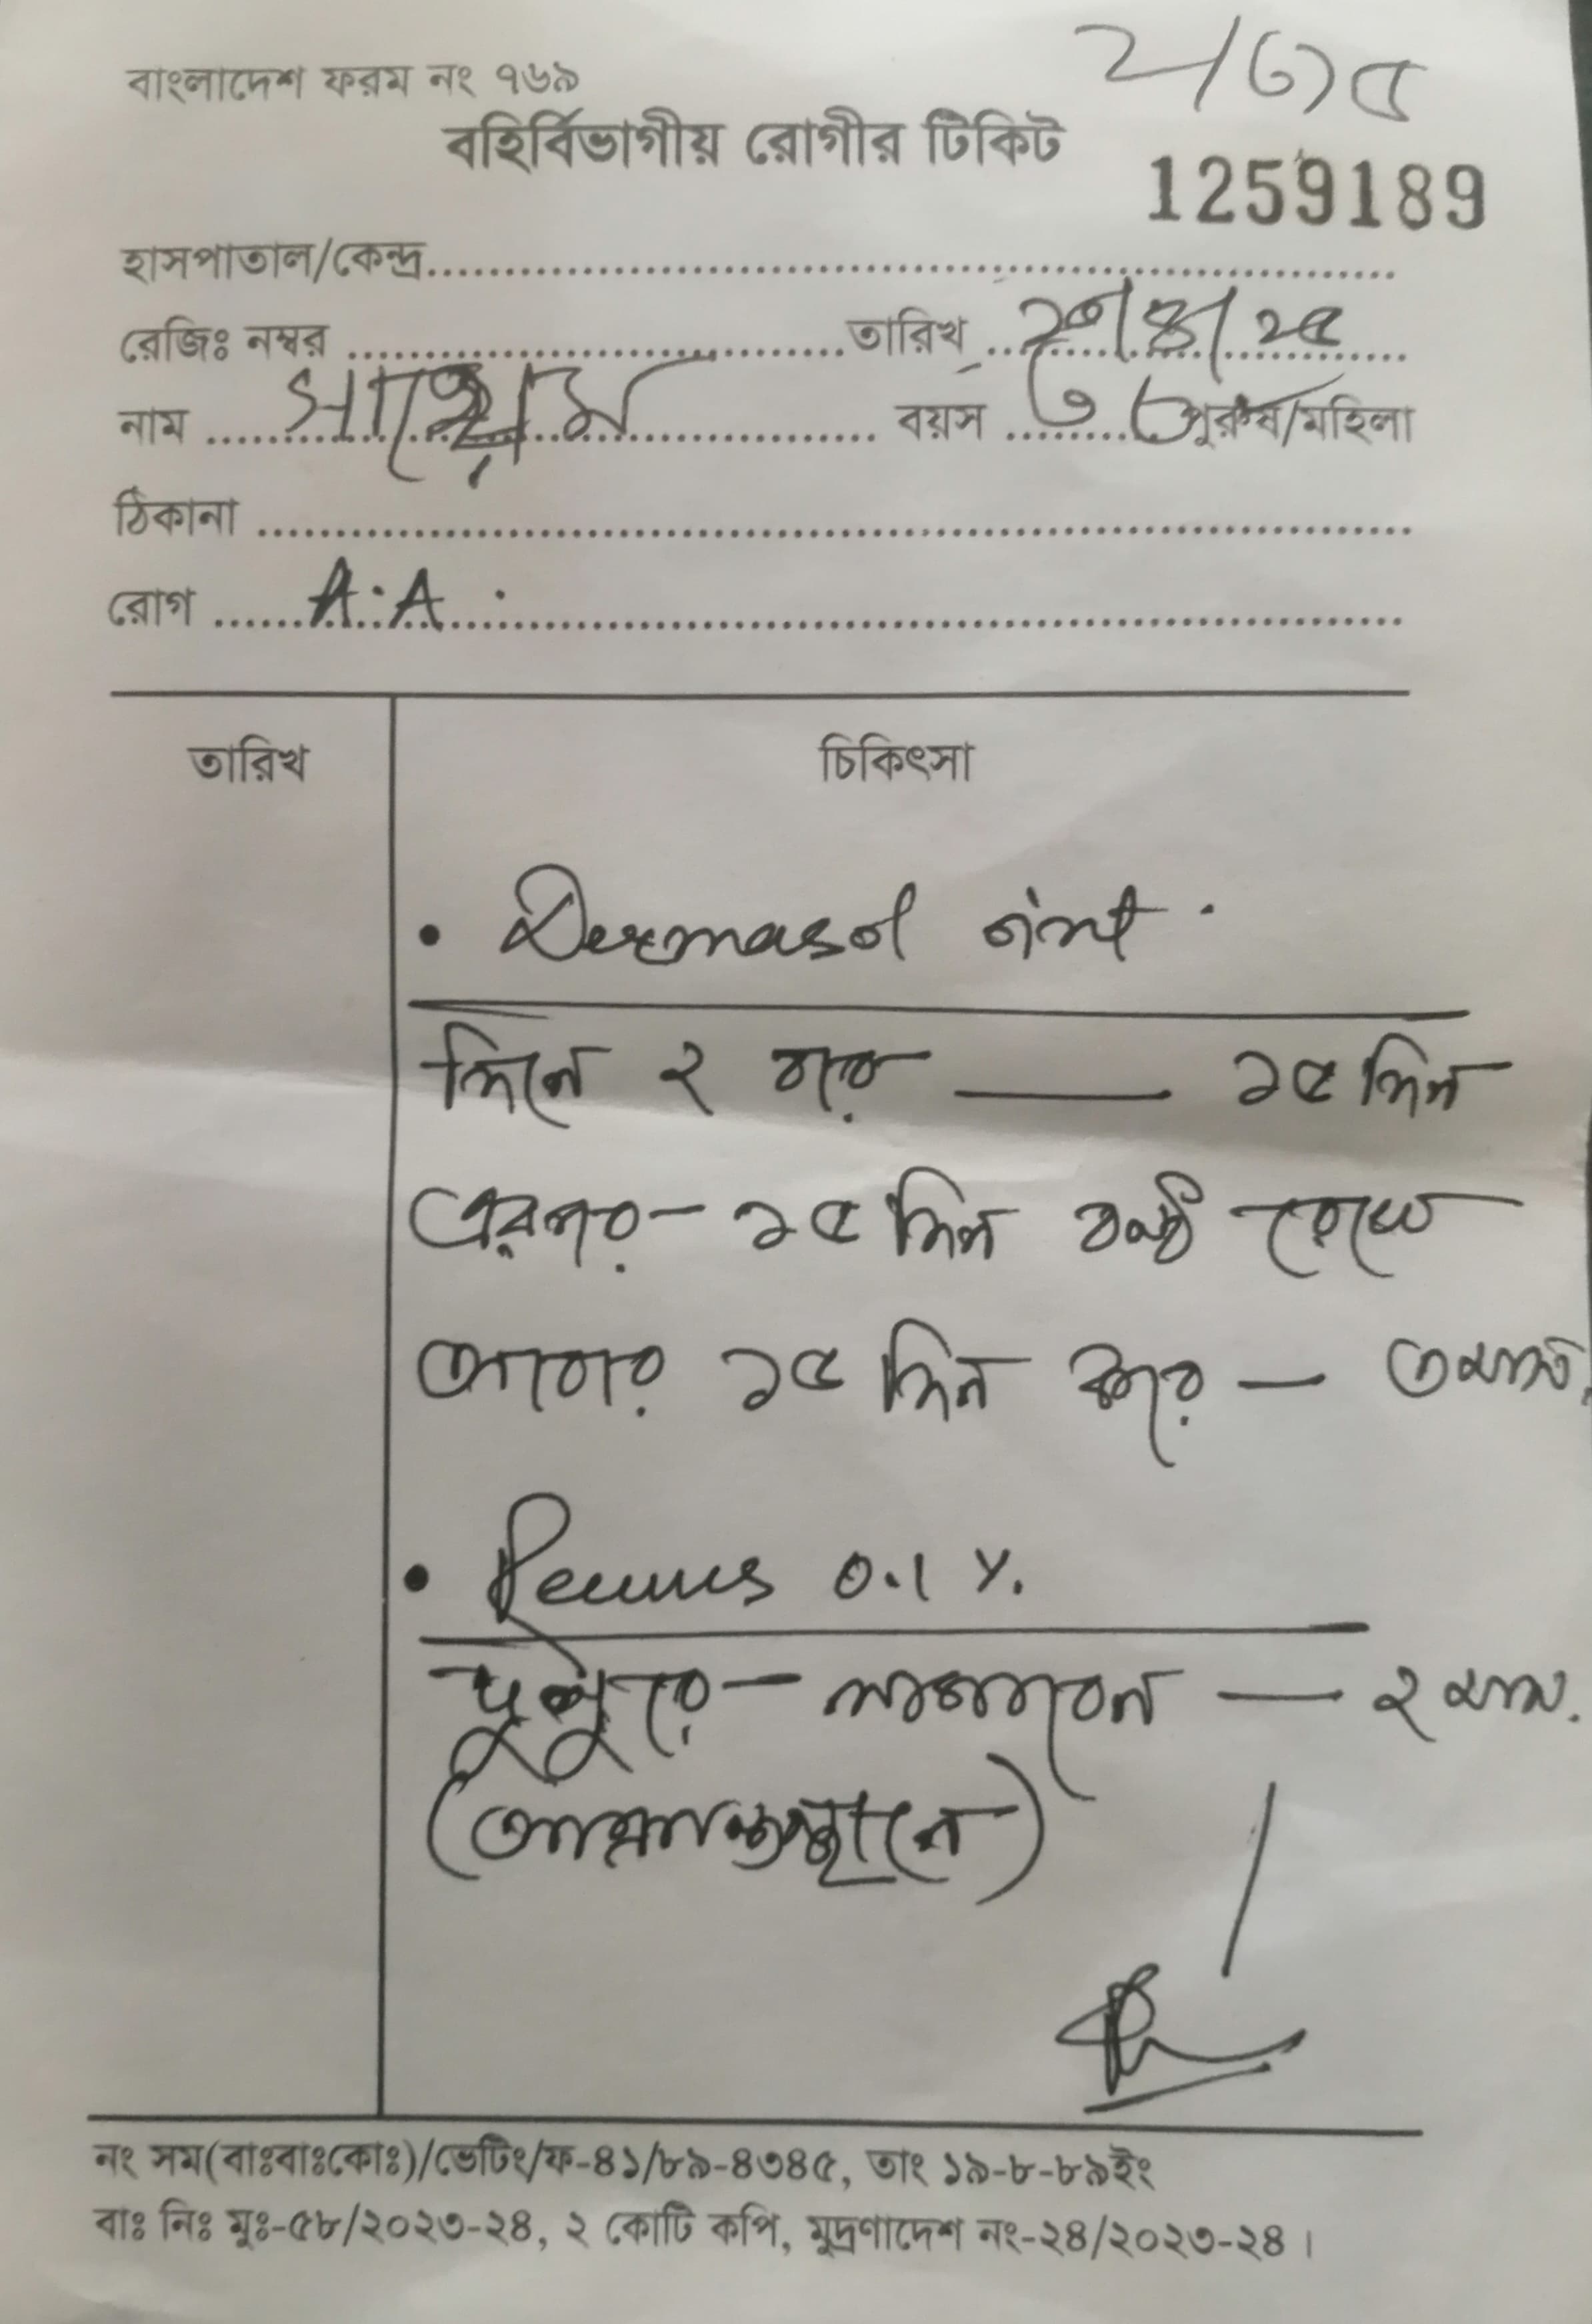 বাংলাদেশ ফরম নং ৭৬৯
বহির্বিভাগীয় রোগীর টিকিট
1259189
হাসপাতাল/কেন্দ্র
রেজিঃ নম্বর তারিখ
নাম বয়স ৩ পুরুষ/মহিলা
ঠিকানা
রোগ A.A.
তারিখ চিকিৎসা
• Dermasol
দিনে ২ বার — ১৫ দিন
এরপর - ১৫ দিন বন্ধ রেখে
আবার ১৫ দিন করে — ৩ মাস.
• Remus 0.1 %.
দুপুরে - লাগাবেন — ২ মাস.
(আক্রান্তস্থানে)
নং সম(বাঃবাঃকোঃ)/ভেটিং/ফ-৪১/৮৯-৪৩৪৫, তাং ১৯-৮-৮৯ইং
বাঃ নিঃ মুঃ-৫৮/২০২৩-২৪, ২ কোটি কপি, মুদ্রণাদেশ নং-২৪/২০২৩-২৪।